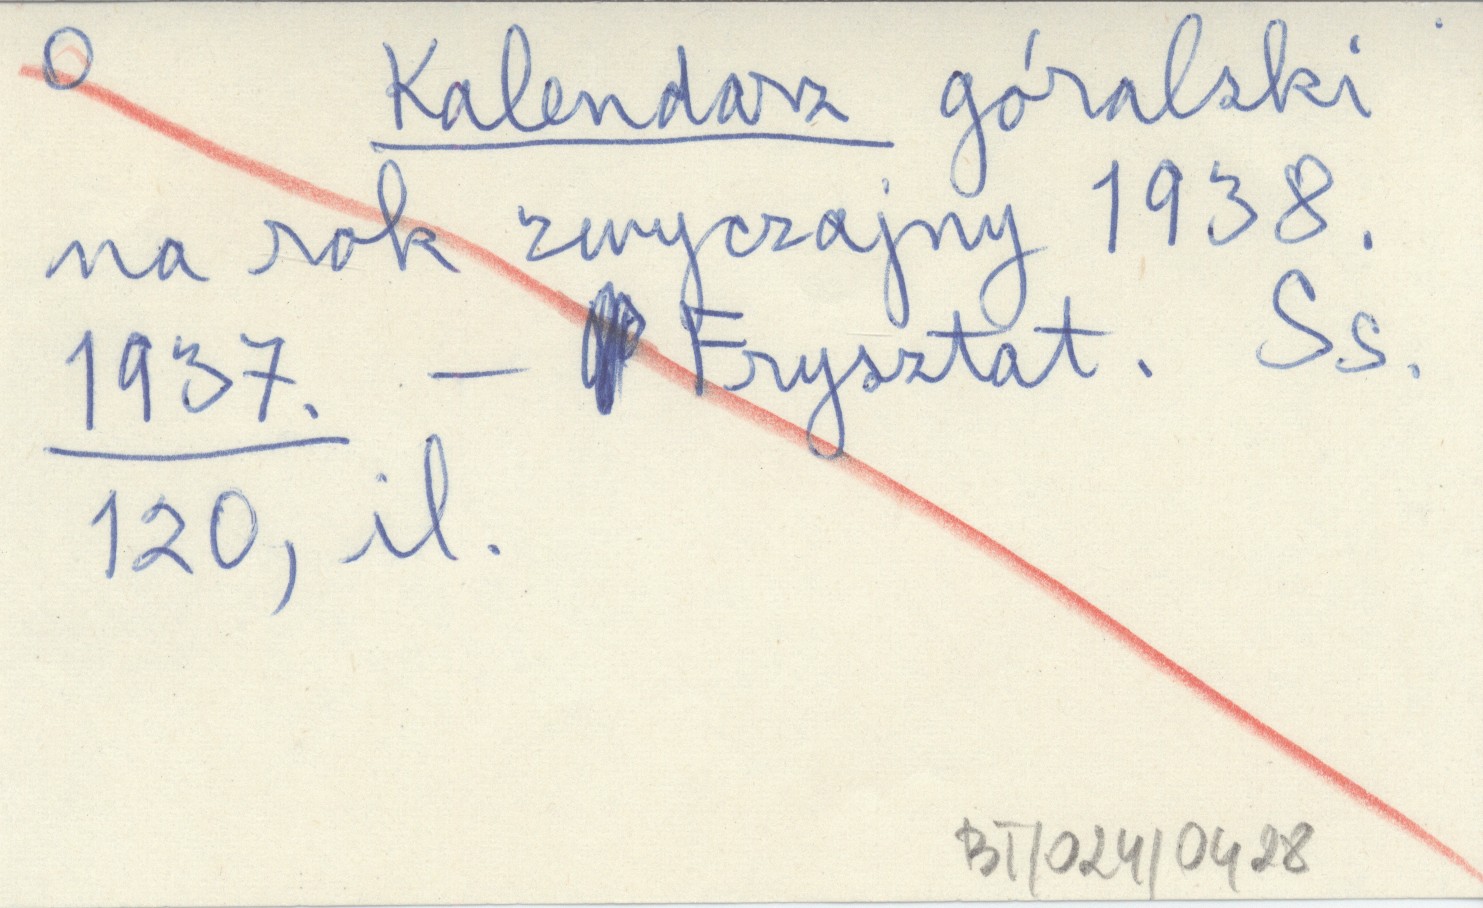 O Kalendarz góralski
na rok zwyczajny 1938.
1937. — Frysztat. Ss.
120, il.
BT/024/0428